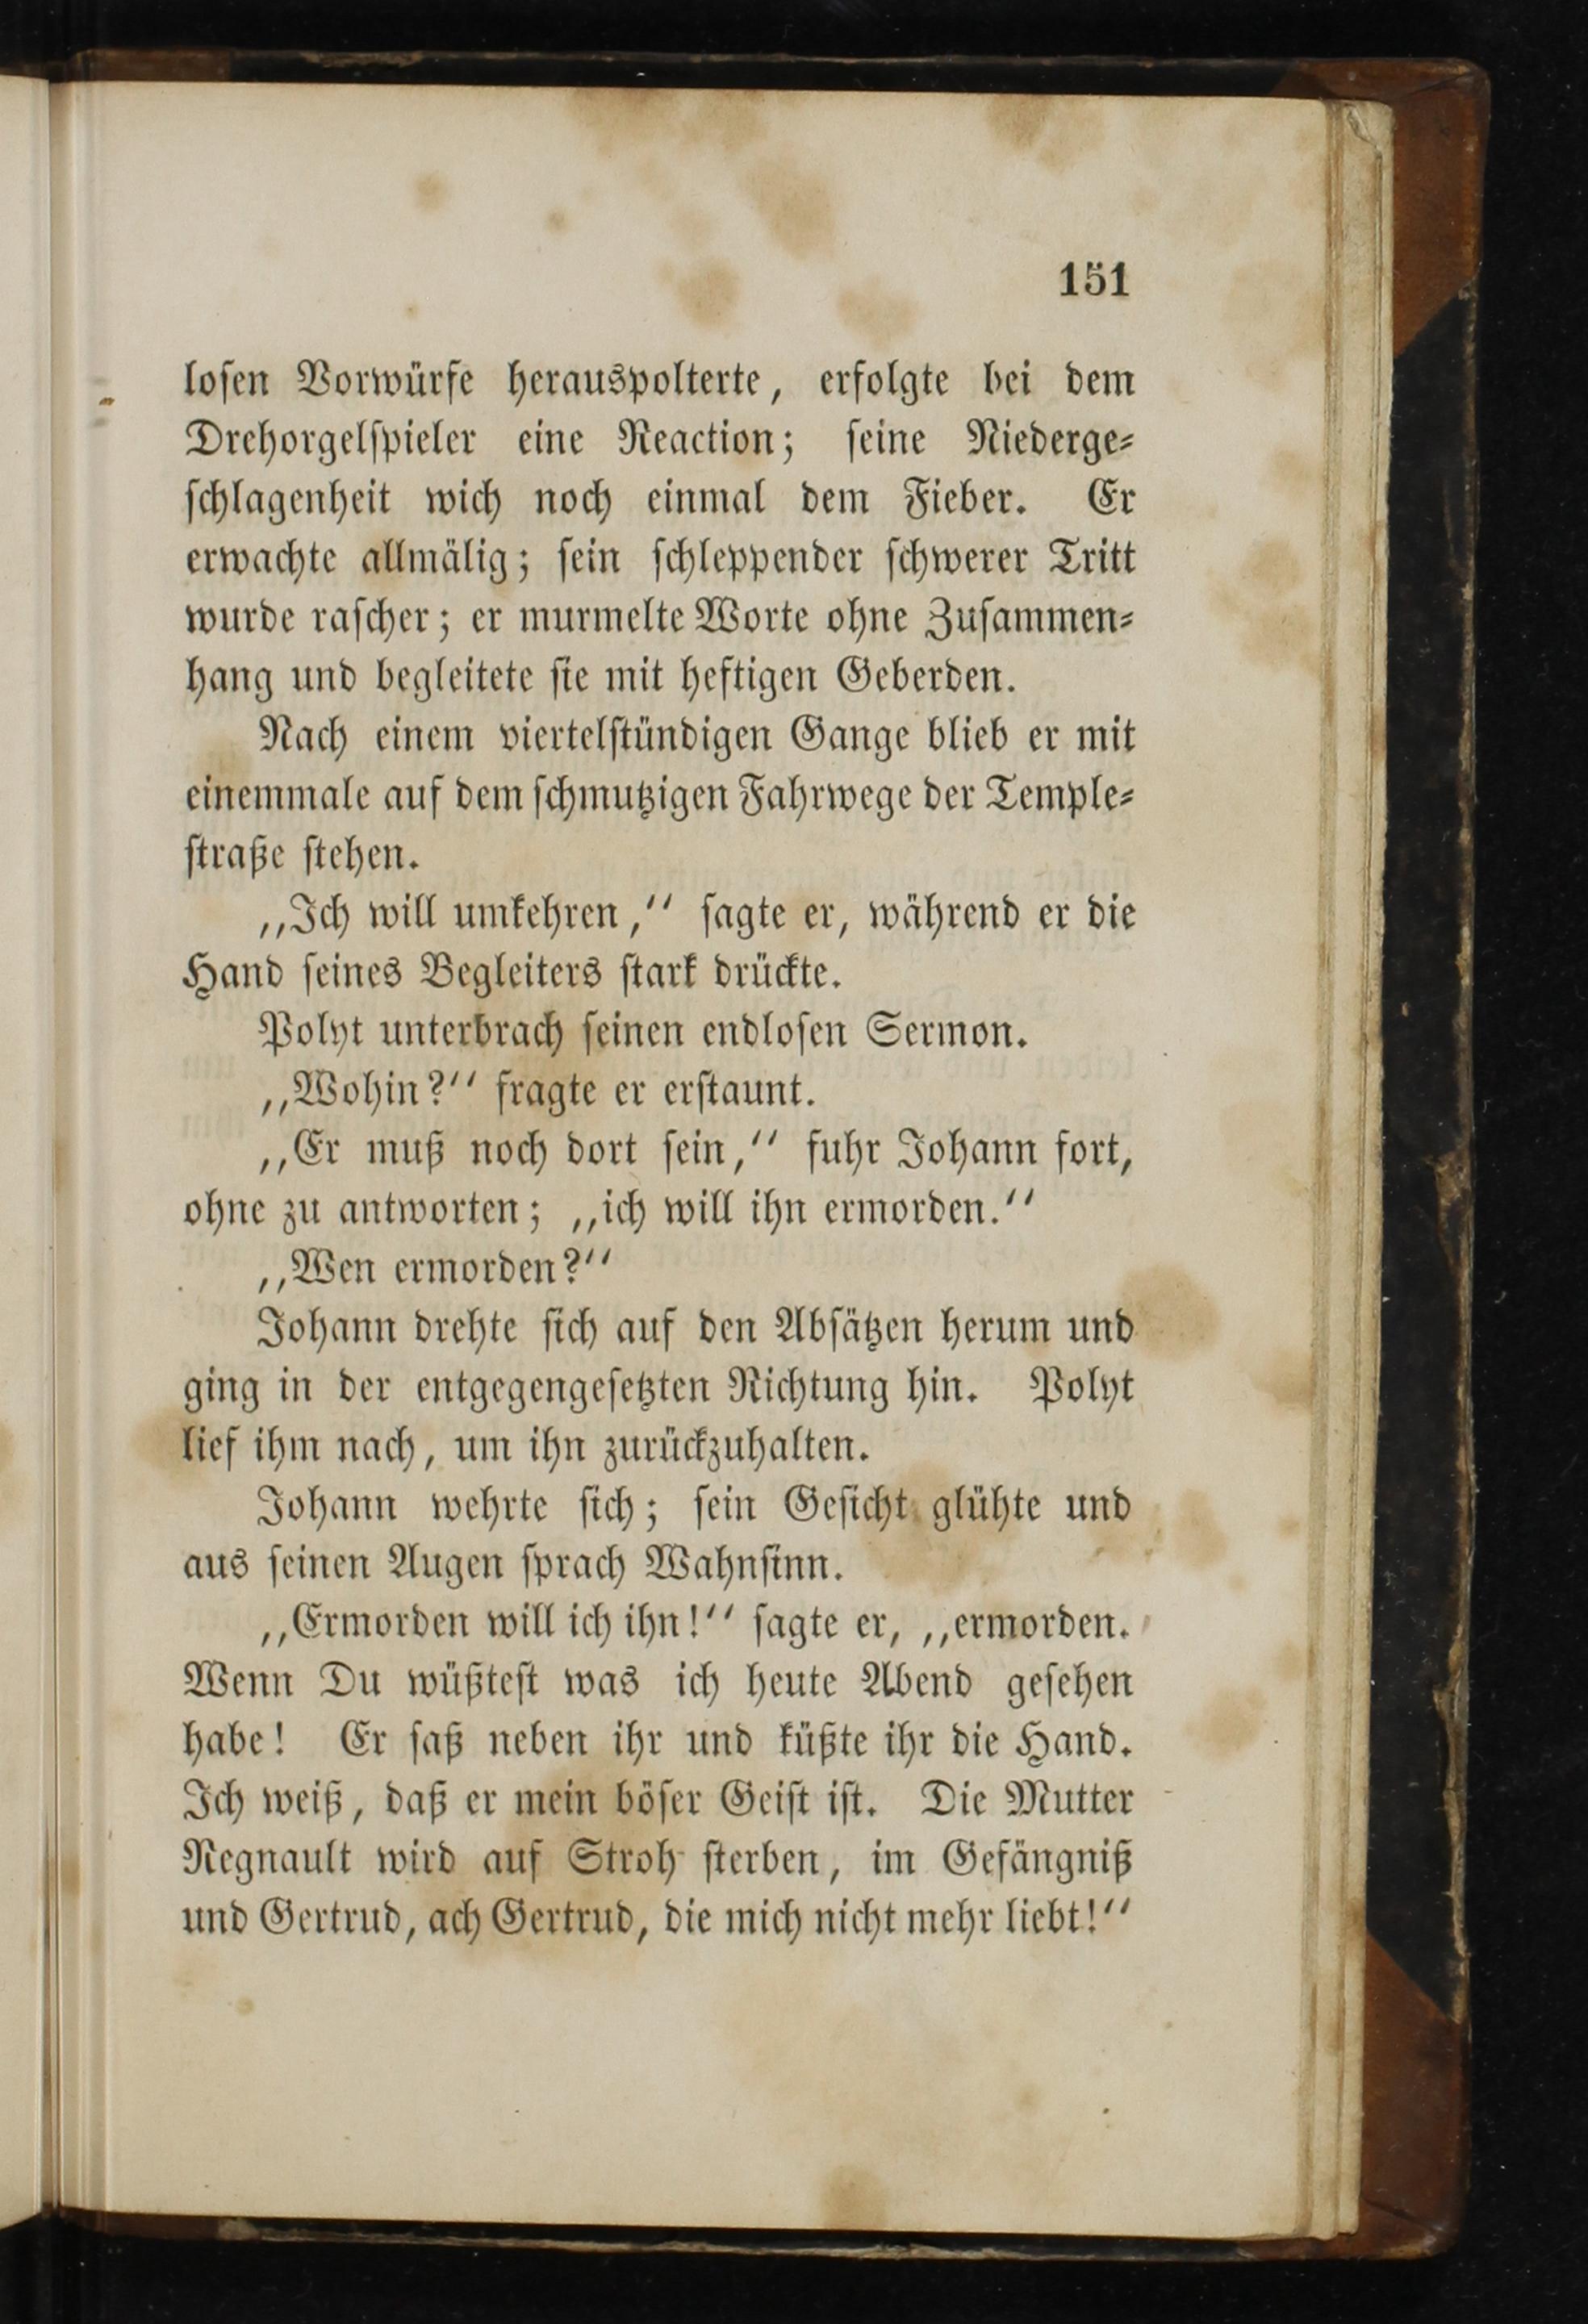 151
losen Vorwürfe herauspolterte, erfolgte bei dem
Drehorgelspieler eine Reaction; seine Niederge-
schlagenheit wich noch einmal dem Fieber. Er
erwachte allmälig; sein schleppender schwerer Tritt
wurde rascher; er murmelte Worte ohne Zusammen-
hang und begleitete sie mit heftigen Geberden.
Nach einem viertelstündigen Gange blieb er mit
einemmale auf dem schmutzigen Fahrwege der Temple-
straße stehen.
„Ich will umkehren,“ sagte er, während er die
Hand seines Begleiters stark drückte.
Polyt unterbrach seinen endlosen Sermon.
„Wohin?“ fragte er erstaunt.
„Er muß noch dort sein,“ fuhr Johann fort,
ohne zu antworten; „ich will ihn ermorden.“
„Wen ermorden?“
Johann drehte sich auf den Absätzen herum und
ging in der entgegengesetzten Richtung hin. Polyt
lief ihm nach, um ihn zurückzuhalten.
Johann wehrte sich; sein Gesicht glühte und
aus seinen Augen sprach Wahnsinn.
„Ermorden will ich ihn!“ sagte er, „ermorden.
Wenn Du wüßtest was ich heute Abend gesehen
habe! Er saß neben ihr und küßte ihr die Hand.
Ich weiß, daß er mein böser Geist ist. Die Mutter
Regnault wird auf Stroh sterben, im Gefängniß
und Gertrud, ach Gertrud, die mich nicht mehr liebt!“